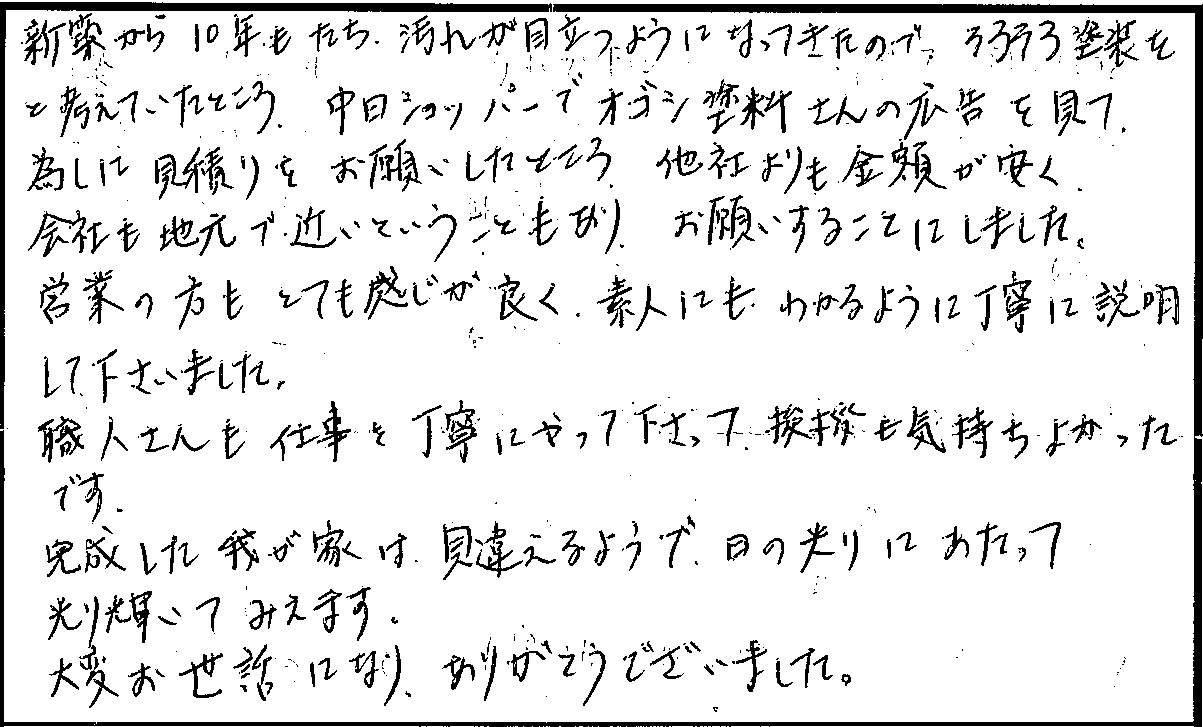 新築から10年もたち、汚れが目立つようになってきたので、そろそろ塗装を
と考えていたところ、中日ショッパーでオゴシ塗料さんの広告を見て、
為しに見積りをお願いしたところ、他社よりも金額が安く、
会社も地元で近いということもあり、お願いすることにしました。
営業の方もとても感じが良く、素人にもわかるように丁寧に説明
して下さいました。
職人さんも仕事を丁寧にやって下さって、挨拶も気持ちよかった
です。
完成した我が家は、見違えるようで、日の光りにあたって
光り輝いてみえます。
大変お世話になり、ありがとうでございました。